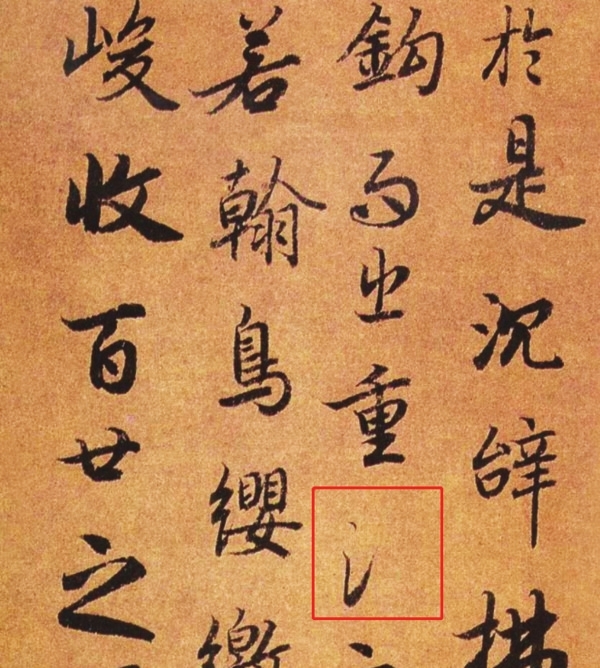 於是沉辝
鈎而出重氵
若翰鳥纓繳
峻收百世之